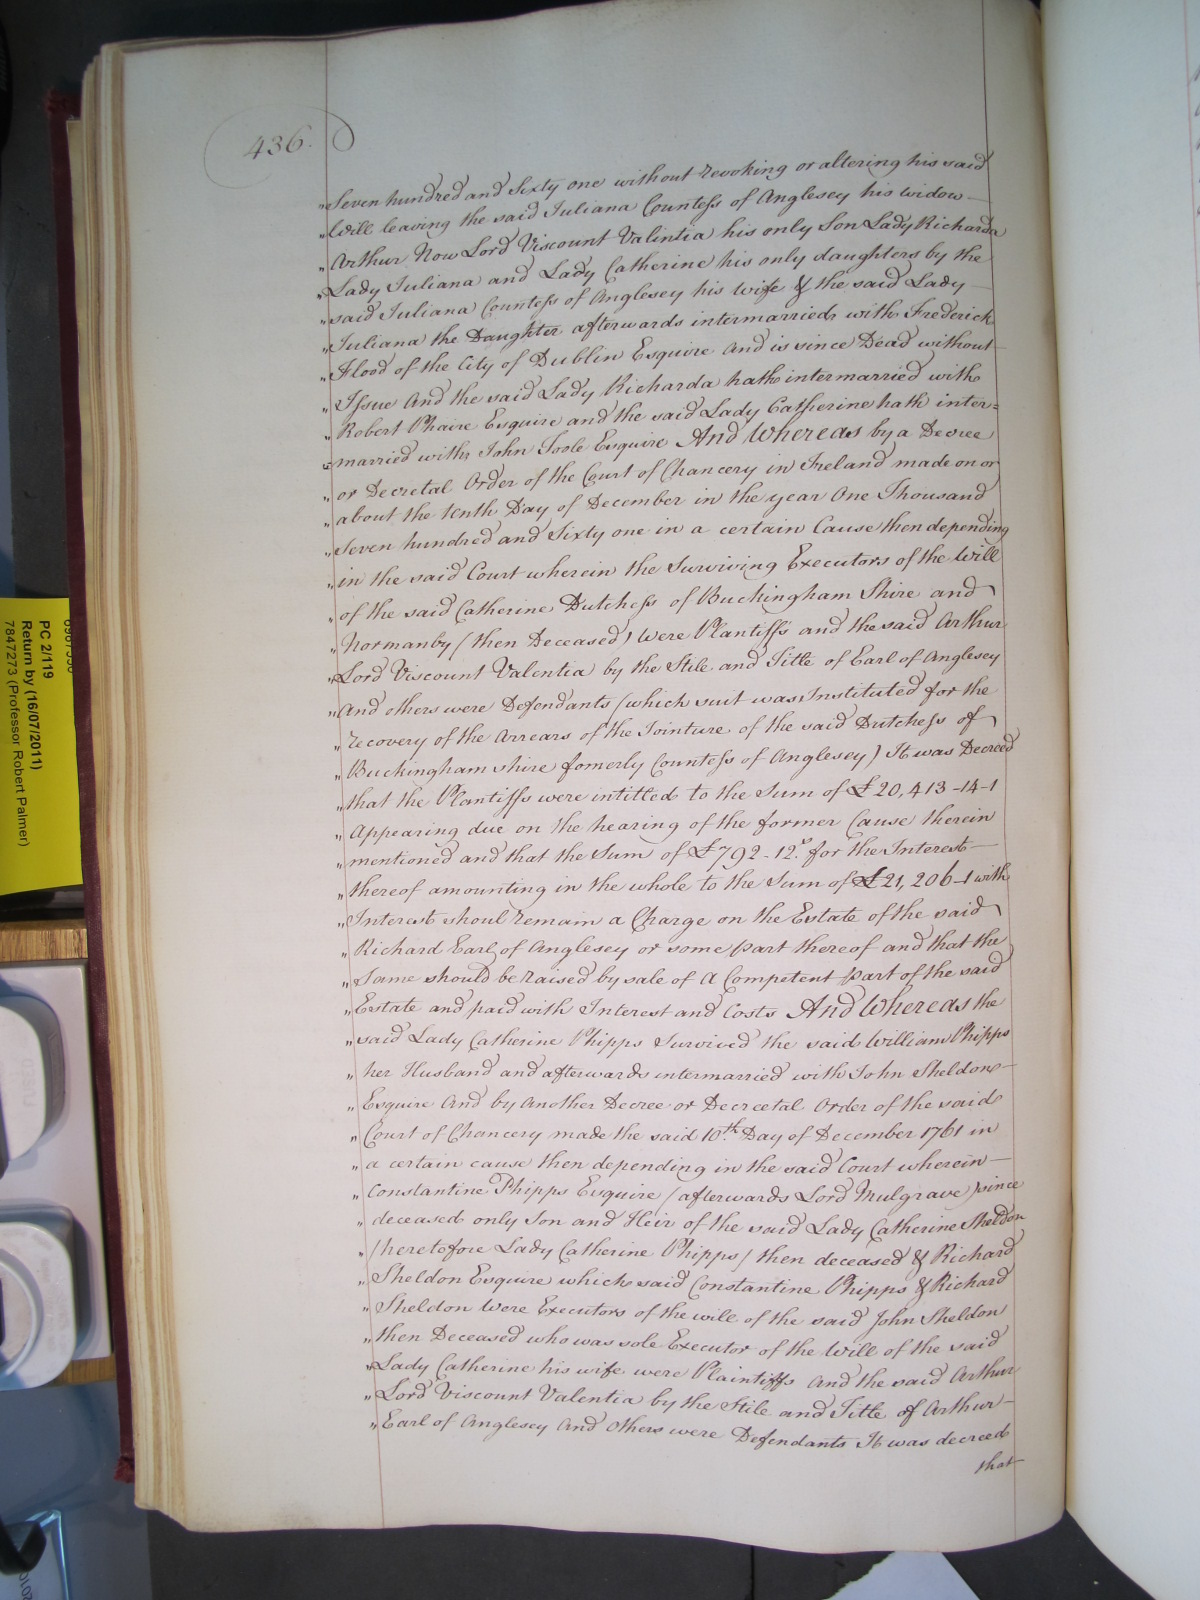 436.
"Seven hundred and Sixty one without revoking or altering his said
"Will leaving the said Juliana Countess of Anglesey his widow
"Arthur Now Lord Viscount Valintia his only Son Lady Richarda
"Lady Juliana and Lady Catherine his only daughters by the
"said Juliana Countess of Anglesey his wife & the said Lady
"Juliana the Daughter afterwards intermarried with Frederick
"Flood of the City of Dublin Esquire and is since Dead without
"Issue And the said Lady Richarda hath intermarried with
"Robert Phaire Esquire and the said Lady Catherine hath inter=
"=married with John Toole Esquire And Whereas by a Decree
"or Decretal Order of the Court of Chancery in Ireland made on or
"about the tenth Day of December in the year One Thousand
"Seven hundred and Sixty one in a certain Cause then depending
"in the said Court wherein the Surviving Executors of the Will
"of the said Catherine Dutchess of Buckingham Shire and
"Normanby (then Deceased) were Plantiffs and the said Arthur
"Lord Viscount Valentia by the Stile and Title of Earl of Anglesey
"And others were Defendants (which suit was Instituted for the
"recovery of the Arrears of the Jointure of the said Dutchess of
"Buckingham shire fomerly Countess of Anglesey) It was Decreed
"that the Plantiffs were intitled to the Sum of £20,413-14-1
"Appearing due on the hearing of the former Cause therein
"mentioned and that the Sum of £792-12.s for the Interest
"thereof amounting in the whole to the Sum of £21,206-1 with
"Interest shoul remain a Charge on the Estate of the said
"Richard Earl of Anglesey or some part thereof and that the
"Same should be raised by sale of a Competent part of the said
"Estate and paid with Interest and Costs And Whereas the
"said Lady Catherine Phipps Survived the said William Phipps
"her Husband and afterwards intermarried with John Sheldon
"Esquire And by another Decree or Decreetal Order of the said
"Court of Chancery made the said 10.th Day of December 1761 in
"a certain cause then depending in the said Court wherein
"Constantine Phipps Esquire (afterwards Lord Mulgrave) since
"deceased only Son and Heir of the said Lady Catherine Sheldon
"(heretofore Lady Catherine Phipps) then deceased & Richard
"Sheldon Esquire which said Constantine Phipps & Richard
"Sheldon were Executors of the will of the said John Sheldon
"then Deceased who was sole Executor of the Will of the said
"Lady Catherine his wife were Plaintiffs and the said Arthur
"Lord Viscount Valentia by the Stile and Title of Arthur
"Earl of Anglesey And Others were Defendants It was decreed
that
PC 2/119
Return by (16/07/2011)
7847273 (Professor Robert Palmer)